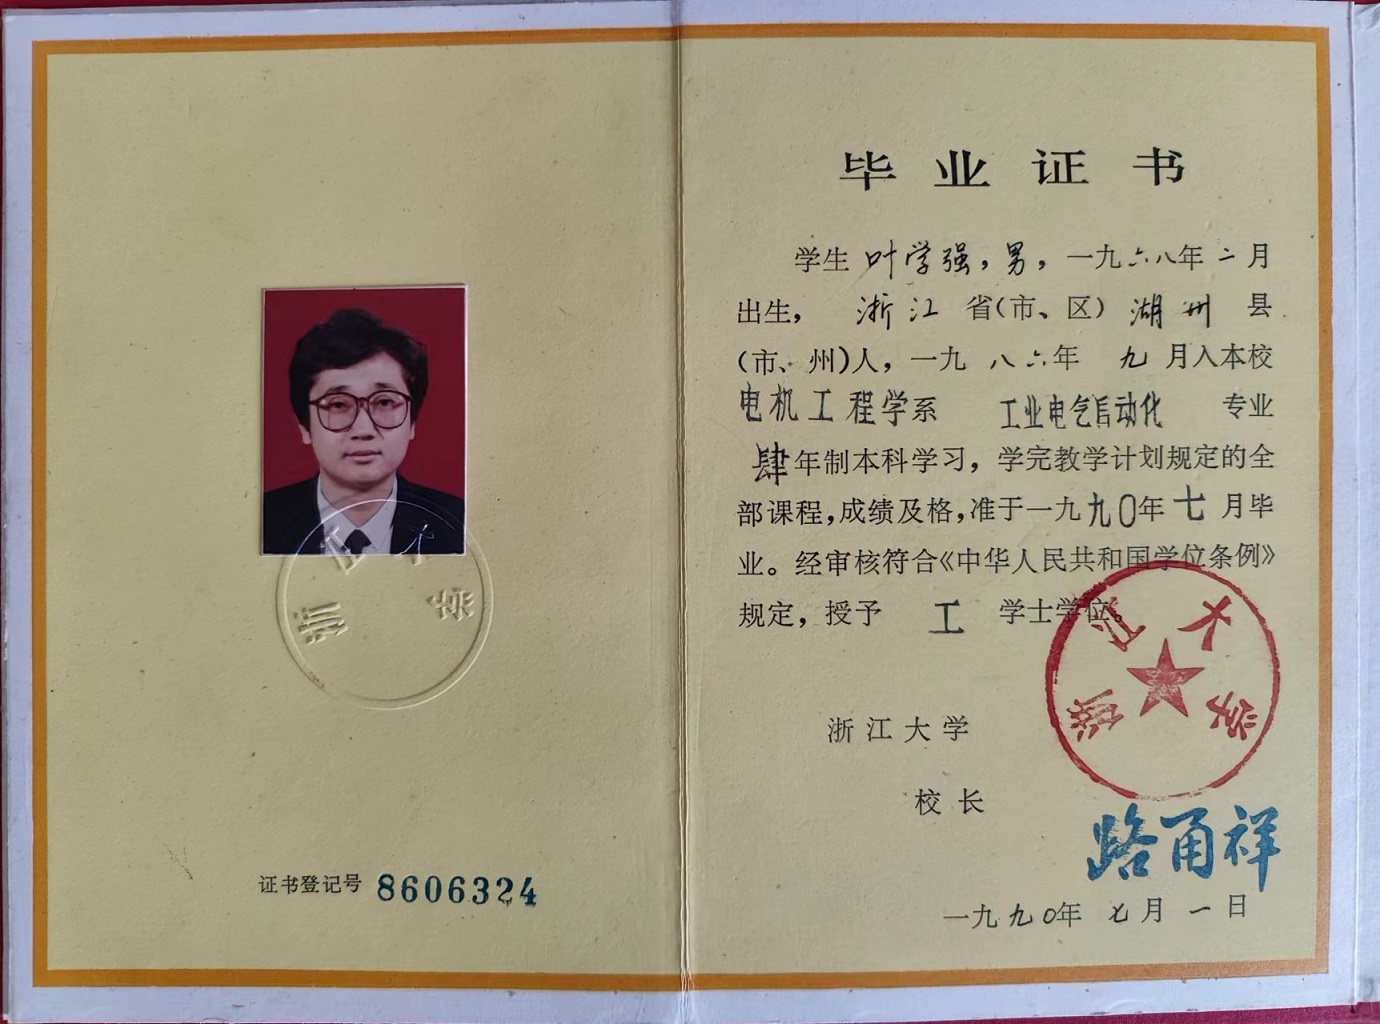 浙江大学
证书登记号 8606324
毕业证书
学生叶学强，男，一九六八年二月
出生，浙江省(市、区)湖州县
(市、州)人，一九八六年九月入本校
电机工程学系 工业电气自动化 专业
肆年制本科学习，学完教学计划规定的全
部课程，成绩及格，准于一九九〇年七月毕
业。经审核符合《中华人民共和国学位条例》
规定，授予 工 学士学位。
浙江大学
浙江大学
校长
路甬祥
一九九〇年七月一日